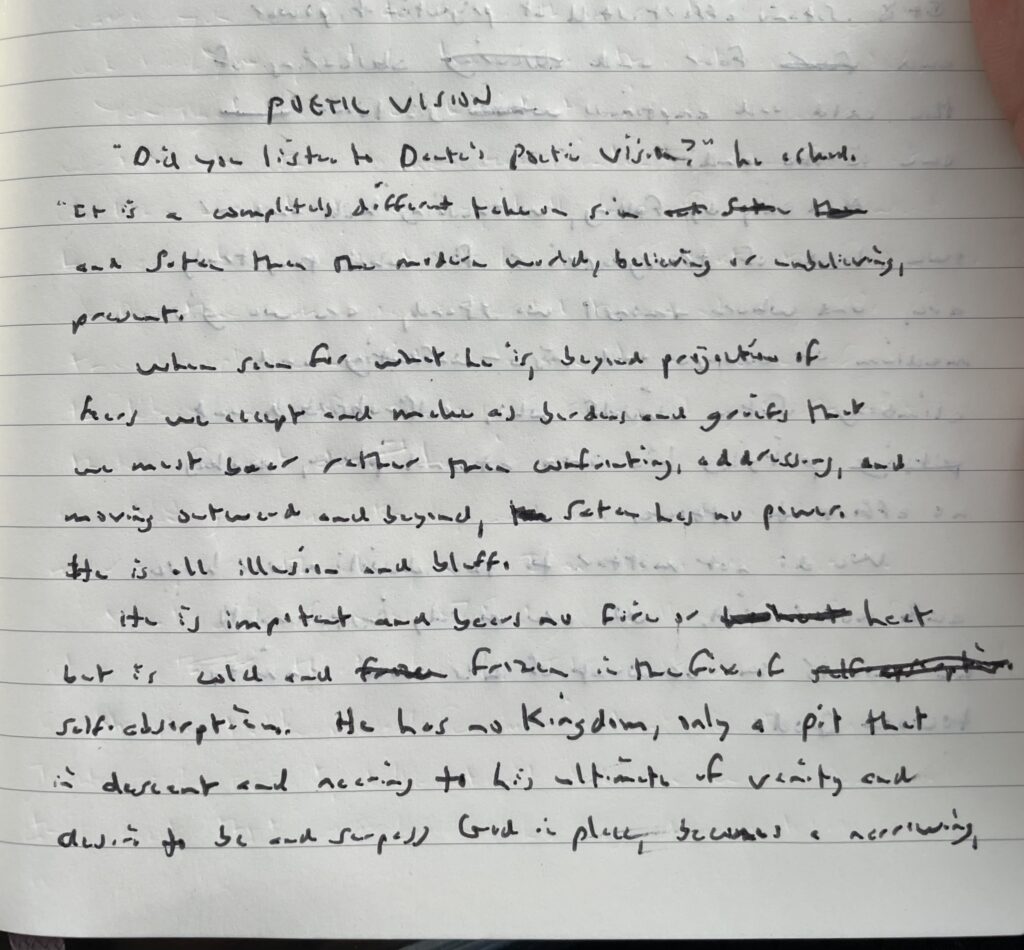 POETIC VISION
"Did you listen to Dante's Poetic Vision?" he asked.
"It is a completely different take on sin
and Satan than the modern world, believing or unbelieving,
present.
When seen for what he is, beyond projection of
fears we accept and make as burdens and griefs that
we must bear rather than confronting, addressing, and
moving outward and beyond, Satan has no power.
He is all illusion and bluff.
He is impotent and bears no fire or heat
but is cold and frozen in the fix of
self-absorption. He has no Kingdom, only a pit that
in descent and nearing to his ultimate of vanity and
desire to be and surpass God in place, becomes a narrowing,